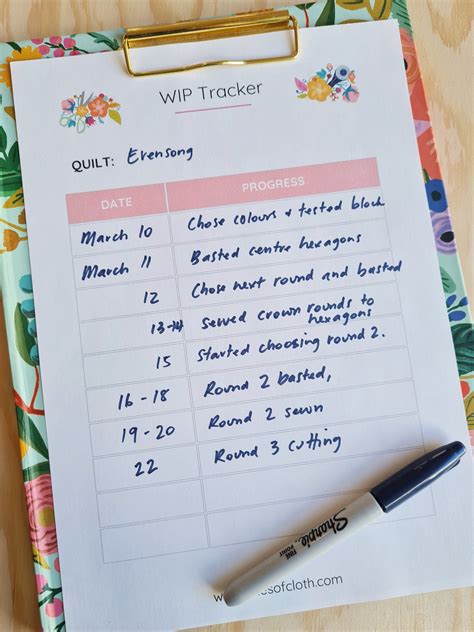 WIP Tracker
QUILT: Evensong
DATE PROGRESS
March 10 Chose colours & tested block
March 11 Basted centre hexagons
12 Chose next round and basted
13-14 Sewed crown rounds to
hexagons
15 Started choosing round 2.
16 - 18 Round 2 basted,
19 - 20 Round 2 sewn
22 Round 3 cutting
Sharpie.
FINE
POINT
esofcloth.com